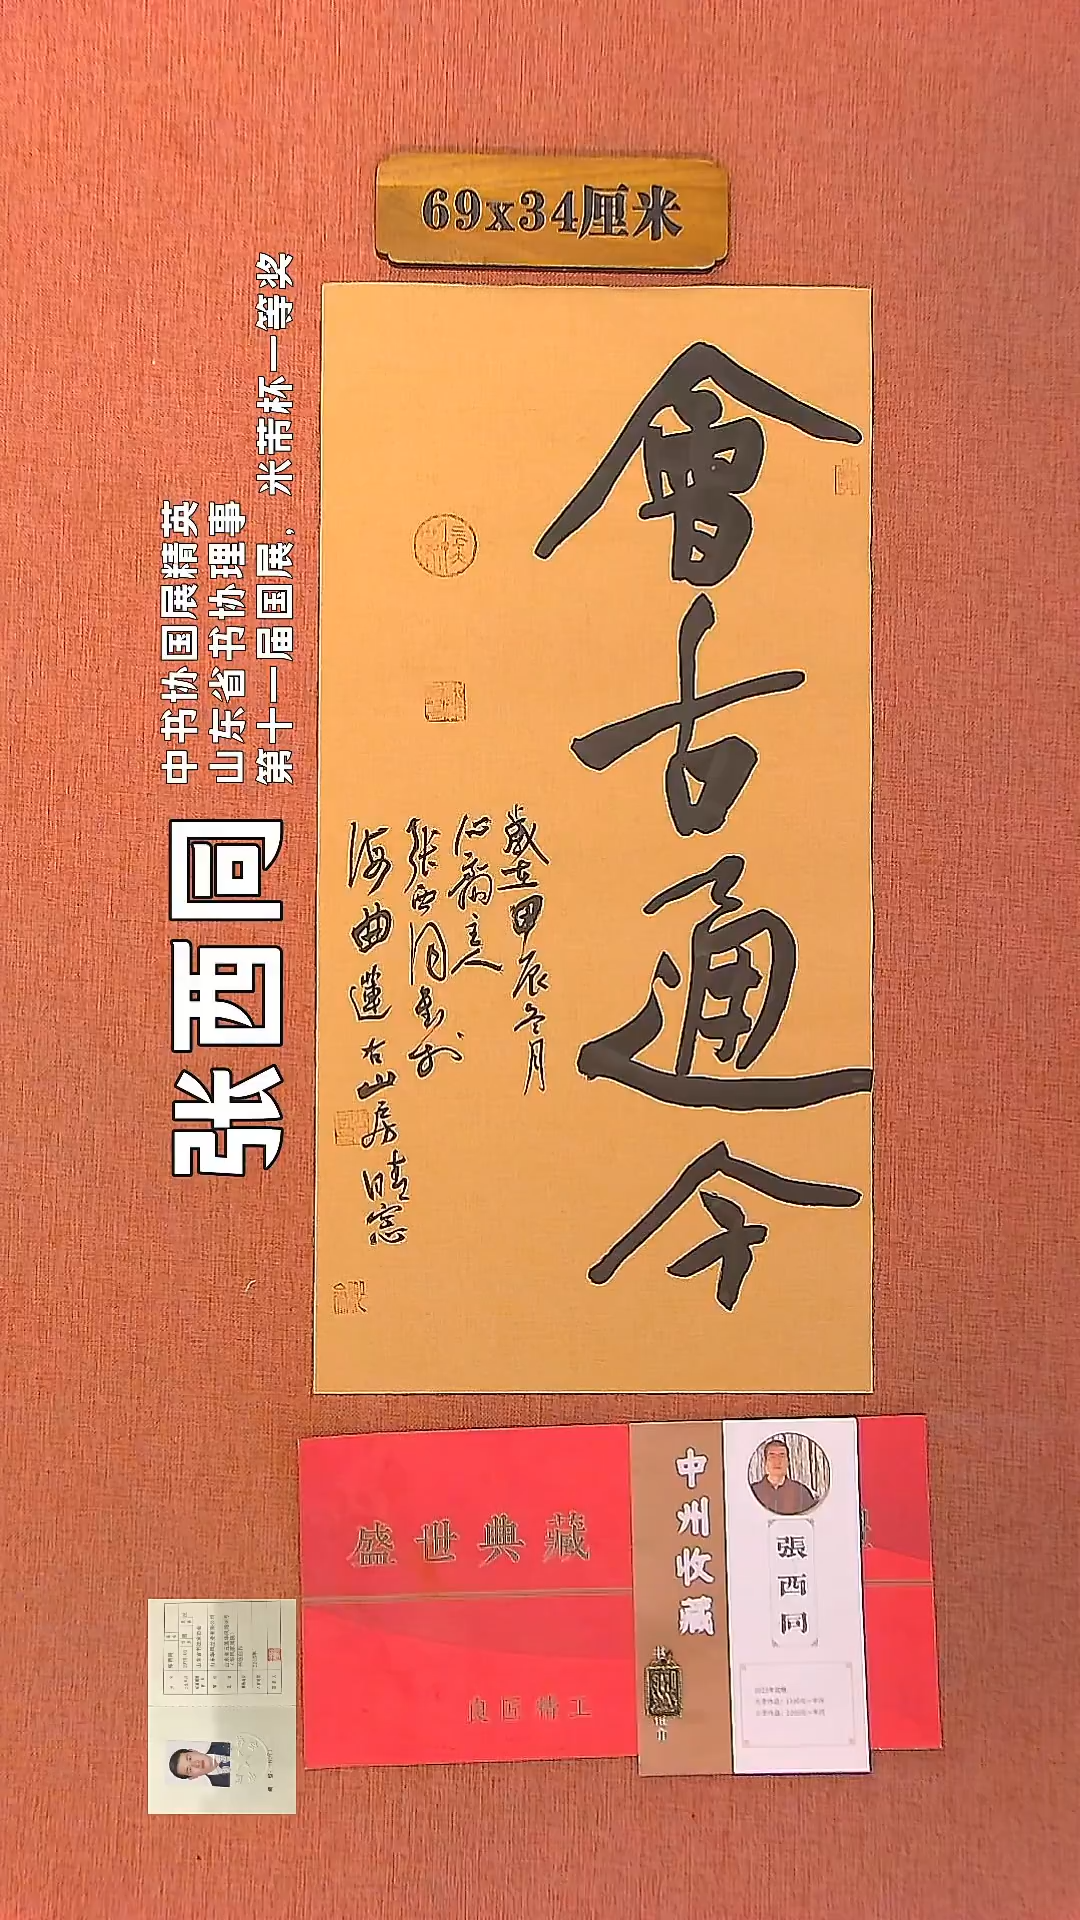 69x34厘米
張西同
中书协国展精英
山东省书协理事
第十一届国展，米芾杯一等奖
會古通今
歲在甲辰冬月
心齋主人
張西同書於
海曲蓮石山房晴窓
盛世典藏
良匠精工
中州收藏
張西同